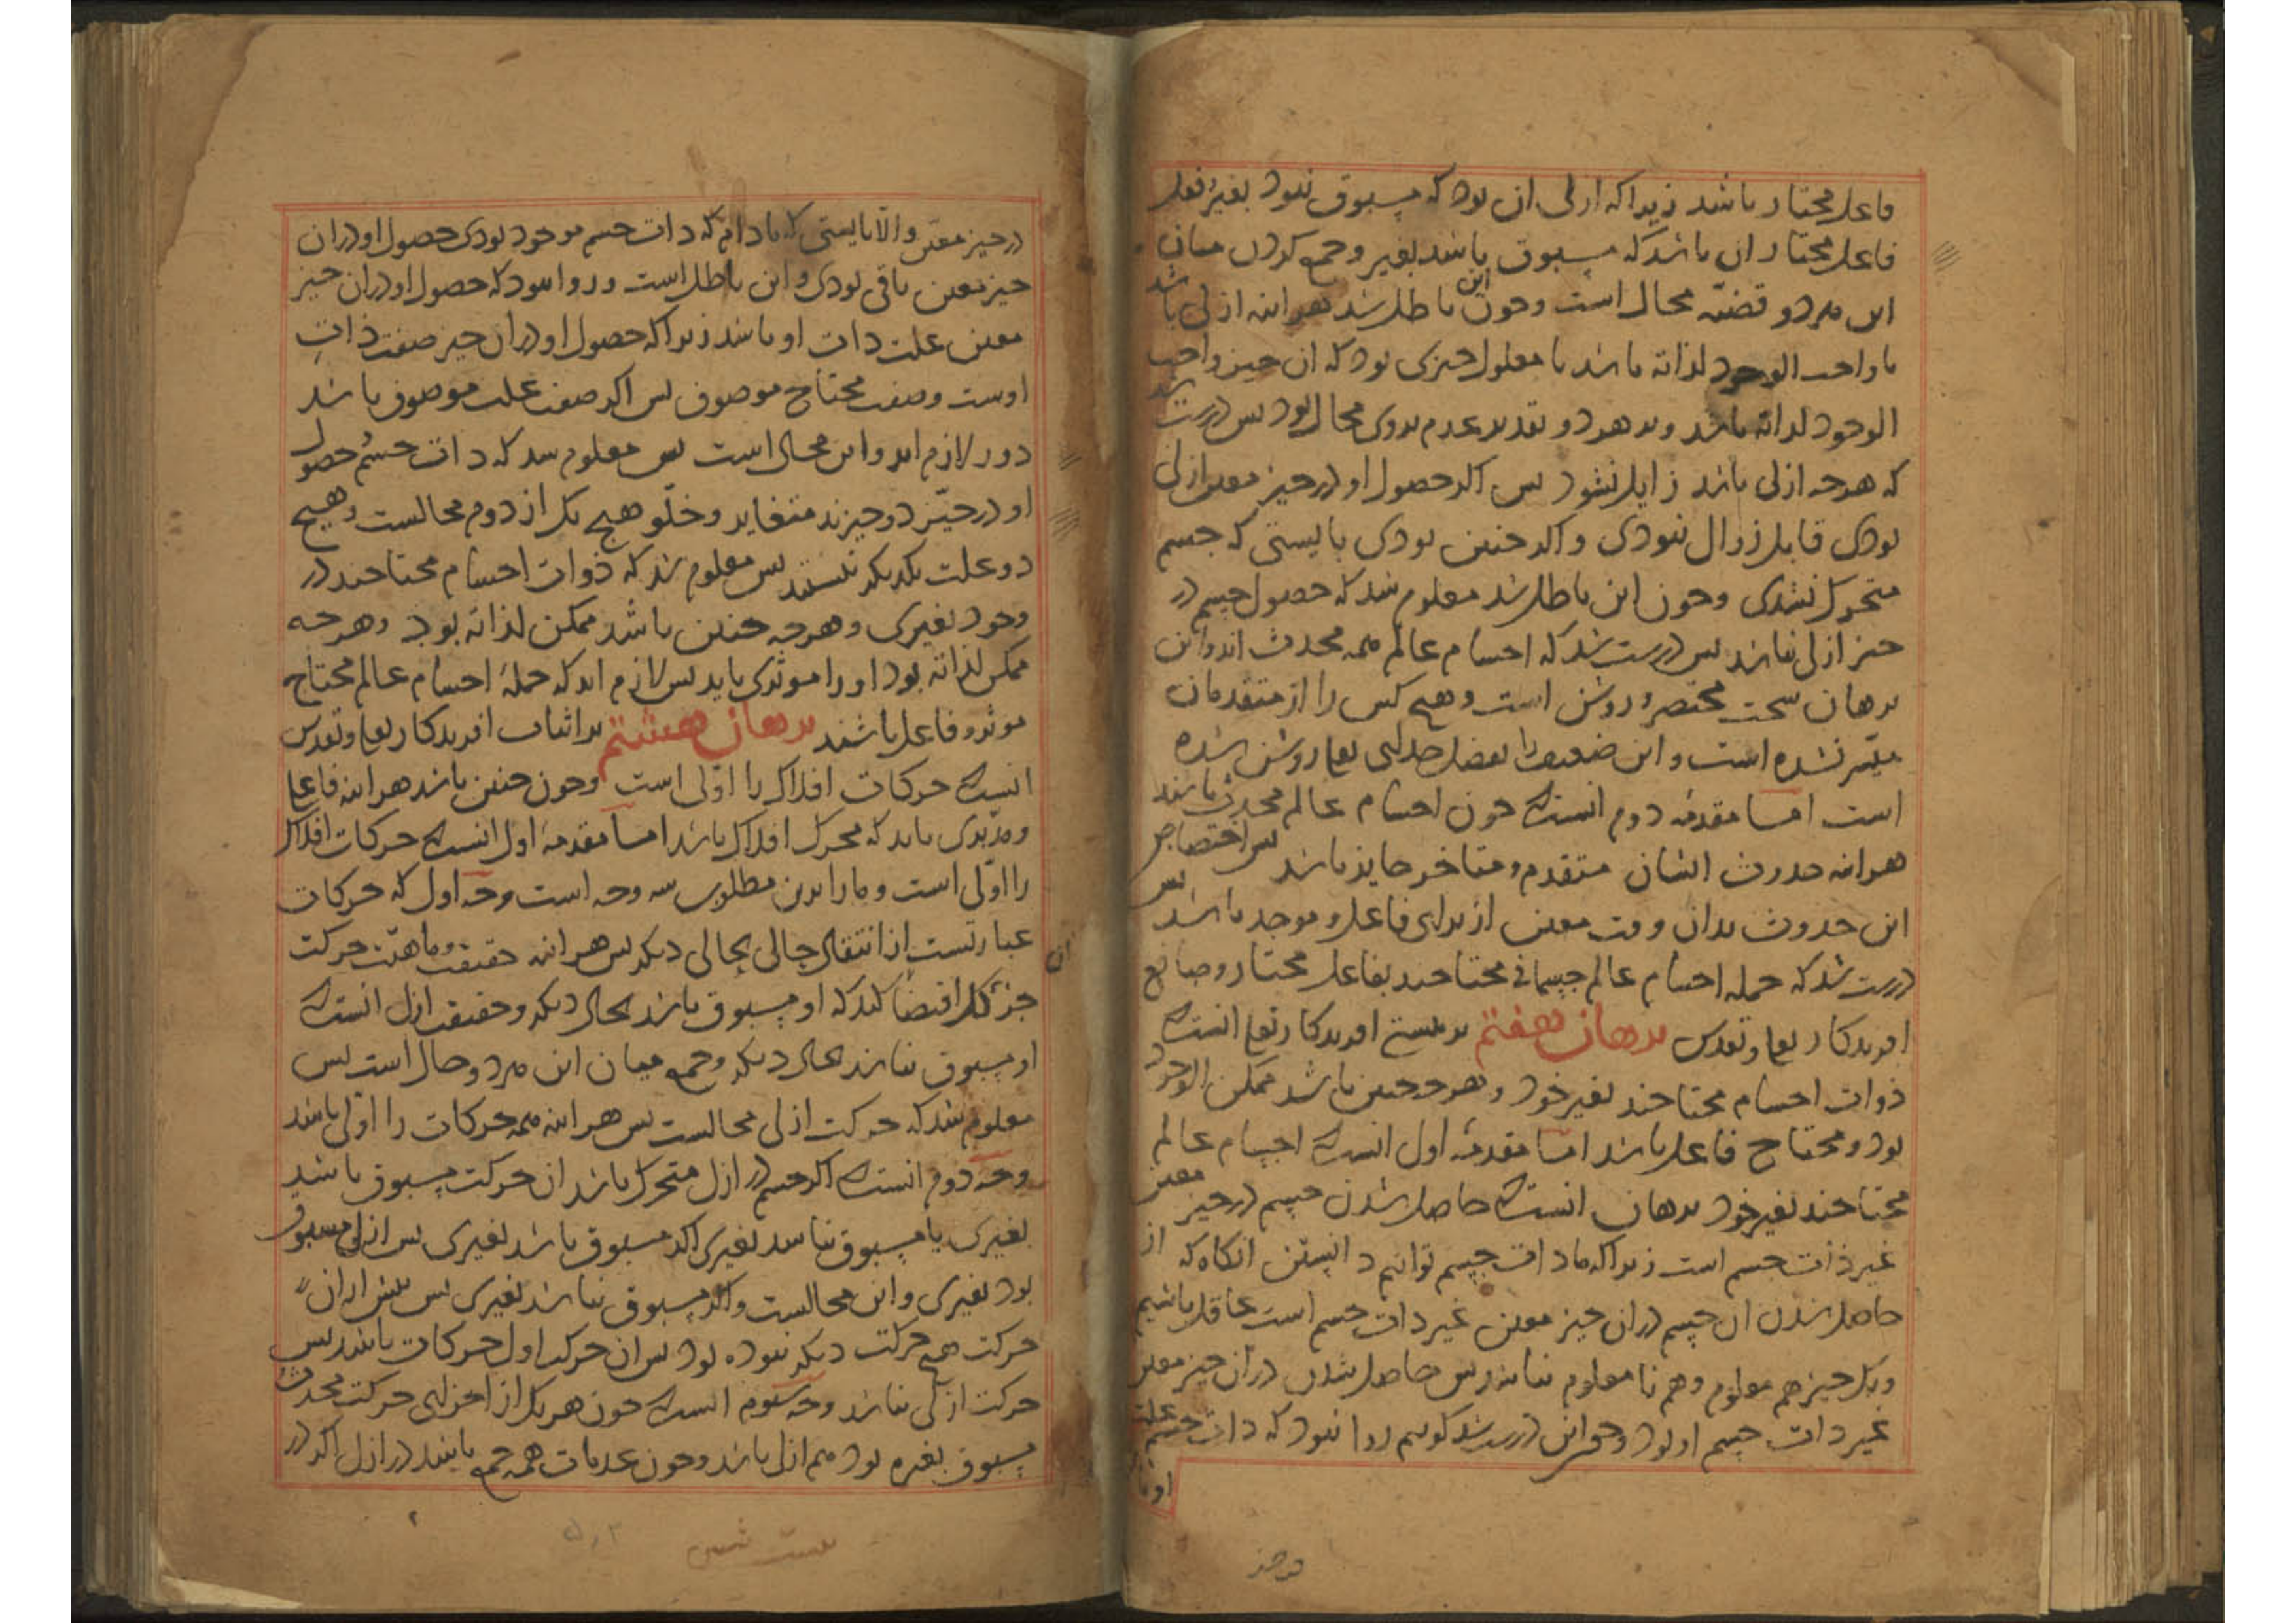 فاعل مختار باشد زیرا که ازلی ان بود که مسبوق نبود بغیر و فعل
فاعل مختار ان باشد که مسبوق باشد بغیر و جمع کردن میان
این هردو قضیّه محال است و چون این باطل شد هراینه ازلی باشد
یا واجب الوجود لذاته باشد یا معلول چیزی بود که ان چیز واجب
الوجود لذاته باشد و بر هر دو تقدیر عدم بروی محال بود پس درست شد
که هرچه ازلی باشد زایل نشود پس اکر حصول او در حیز معین ازلی
بودی قابل زوال نبودی و اکر چنین بودی بایستی که جسم
متحرک نشدی و چون این باطل شد معلوم شد که حصول جسم در
حیز ازلی نباشد پس درست شد که اجسام عالم همه محدث اند و این
برهان سخت مختصر و روشن است و هیچ کس را از متقدمان
میّسر نشده است و این ضعیف را بفضل خدای تعا روشن شده
است اما مقدمهٔ دوم انست که چون اجسام عالم محدث باشند
هراینه حدوث ایشان متقدم و متاخر جایز باشد پس اختصاص
این حدوث بدان وقت معین از برای فاعل و موجد باشد پس
درست شد که جمله اجسام عالم جسمانی محتاجند بفاعل مختار و صانع
افریدکار تعا و تقدس برهان هفتم بر هستی افریدکار تعا انست که
ذوات اجسام محتاجند بغیر خود و هرچه چنین باشد ممکن الوجود
بود و محتاج فاعل باشد اما مقدمهٔ اول انست که اجسام عالم
محتاجند بغیر خود برهان انست که حاصل شدن جسم در حیز معین
غیر ذات جسم است زیرا که ما ذات جسم توانیم دانستن انکاه که از
حاصل شدن ان جسم دران حیز معین غیر ذات جسم است غافل باشیم
و یک چیز هم معلوم و هم نا معلوم نباشد پس حاصل شدن دران حیز معین
غیر ذات جسم او بود و چون این درست شد کوییم روا نبود که ذات جسم علت
در حیز معین والّا بایستی که مادام که ذات جسم موجود بودی حصول او دران
حیز معین باقی بودی و این باطل است و روا نبود که حصول او دران حیز
معین علت ذات او باشد زیرا که حصول او دران حیز صفت ذات
اوست و صفت محتاج موصوف پس اکر صفت علت موصوف باشد
دور لازم اید و این محال است پس معلوم شد که ذات جسم و حصول
او در حیّز دو چیزند متغایر و خلّو هیچ یک از دوم محالست و هیچ
دو علت یکدیکر نیستند پس معلوم شد که ذوات اجسام محتاجند در
وجود بغیری و هرچه چنین باشد ممکن لذاته بود و هرچه
ممکن لذاته بود او را موثری باید پس لازم اید که جملهٔ اجسام عالم محتاج
موثر و فاعل باشند برهان هشتم بر اثبات افریدکار تعا و تقدس
انست که حرکات افلاک را اوّلی است و چون چنین باشد هراینه فاعل
و مدّبری باید که محرک افلاک باشد اما مقدمهٔ اول انست که حرکات افلاک
را اوّلی است و ما را برین مطلوب سه وجه است وجه اول که حرکات
عبارتست از انتقال حالی بحالی دیکر پس هراینه حقیقت و ماهیّت حرکت ان
جز که اقتضا کند که او مسبوق باشد بحال دیکر و حقیقت ازل انست که
او مسبوق نباشد بحال دیکر و جمع میان این هردو محال است پس
معلوم شد که حرکت ازلی محالست پس هراینه همه حرکات را اوّلی باشد
وجه دوم انست که اکر جسم در ازل متحرک باشد ان حرکت مسبوق باشد
بغیری یا مسبوق نباشد بغیری اکر مسبوق باشد بغیری پس ازلی مسبوق
بود بغیری و این محالست و اکر مسبوق نباشد بغیری پس پیش از ان
حرکت هیچ حرکت دیکر نبوده بود پس ان حرکت اول حرکات باشد پس
حرکت ازلی نباشد وجه سوم انست که چون هریک از اجزای حرکت محدث
مسبوق بغیره بود هم ازل باشد و چون عدمات همه جمع باشد در ازل اکر در